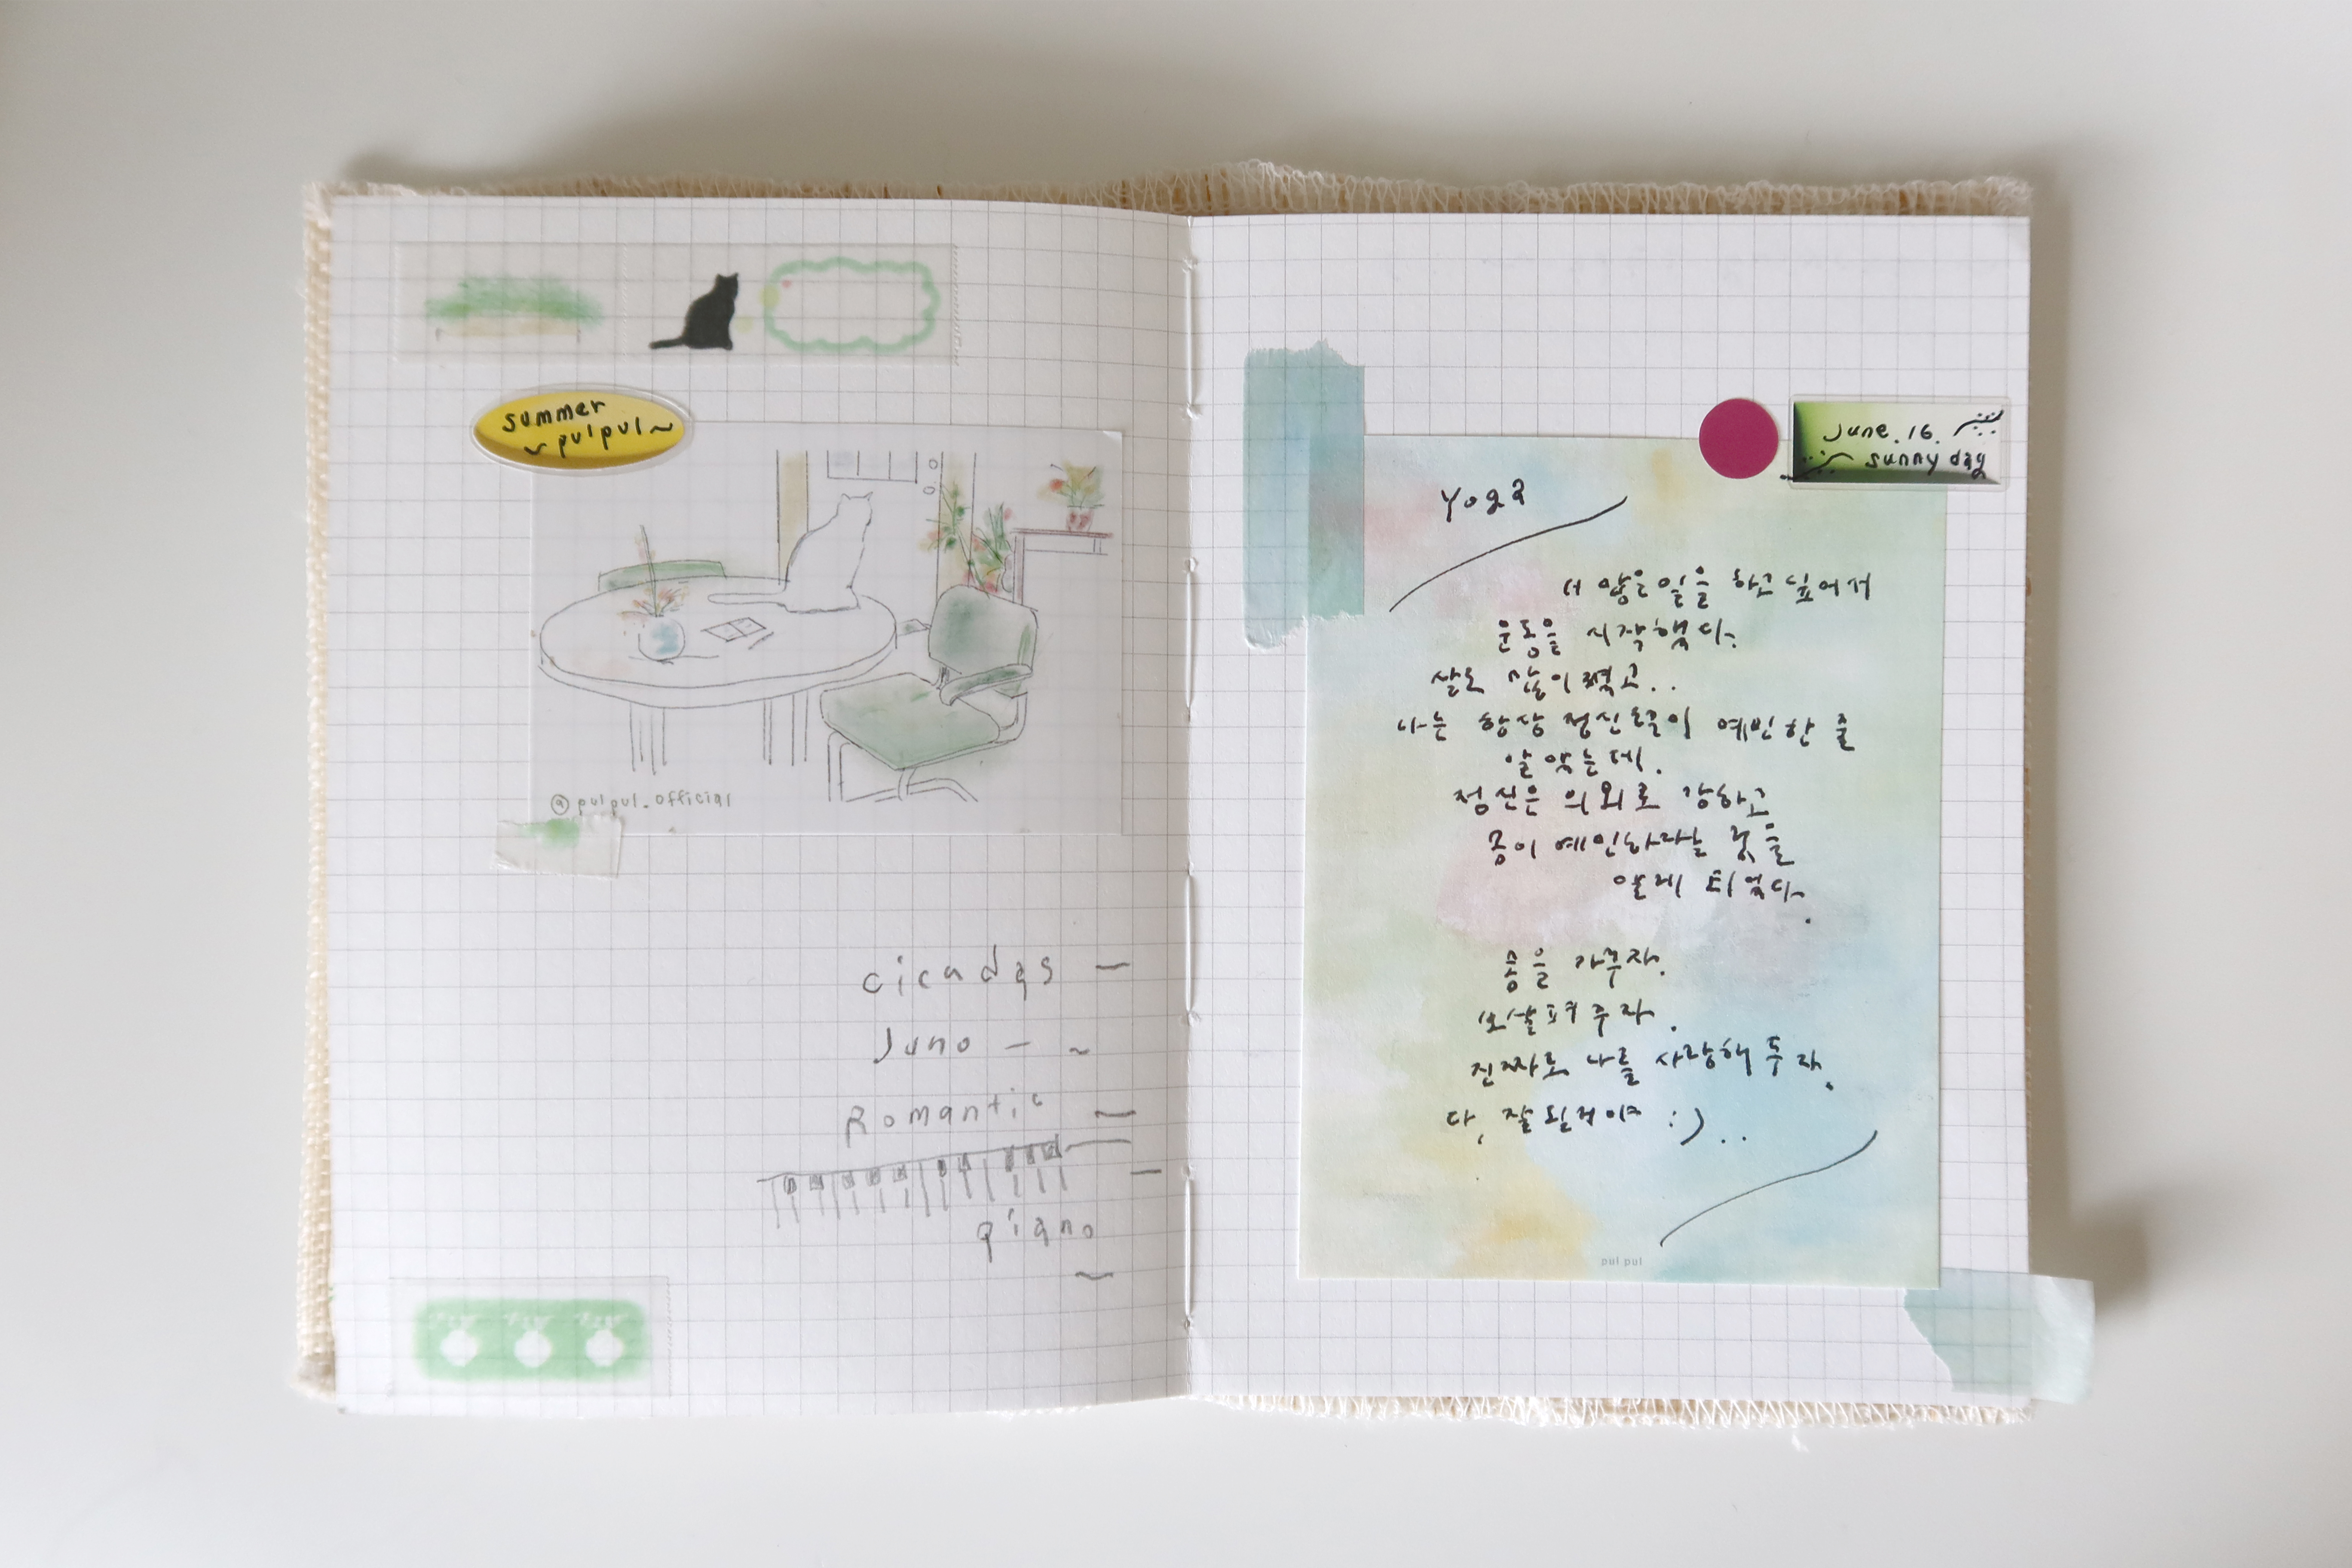 summer
~pulpul~
@pulpul.official
cicadas —
Juno — ~
Romantic —
piano
~
June.16.
sunny day
Yoga
더 많은 일을 하고 싶어서
운동을 시작했다.
살도 많이 쪘고..
나는 항상 정신쪽이 예민한 줄
알았는데.
정신은 의외로 강하고
몸이 예민하다는 것을
알게 되었다.
몸을 가꾸자.
보살펴주자.
진짜로 나를 사랑해주자.
다, 잘 될거야 :)..
pulpul